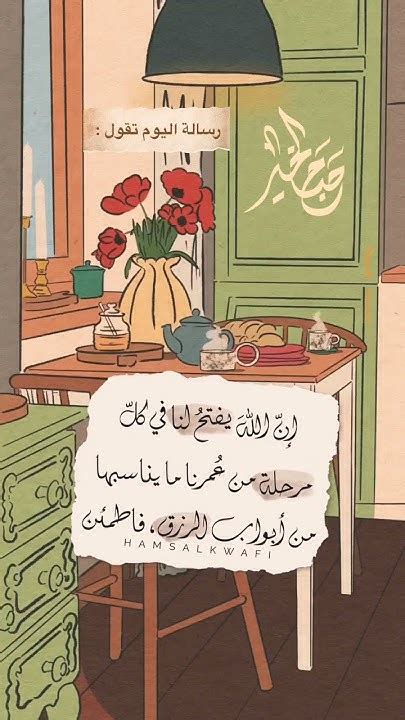 رسالة اليوم تقول :
صباح الخير
إنّ اللهَ يفتحُ لنا في كلّ
مرحلة من عُمرنا ما يناسبها
من أبواب الرزق، فاطمئن
HAMSALKWAFI